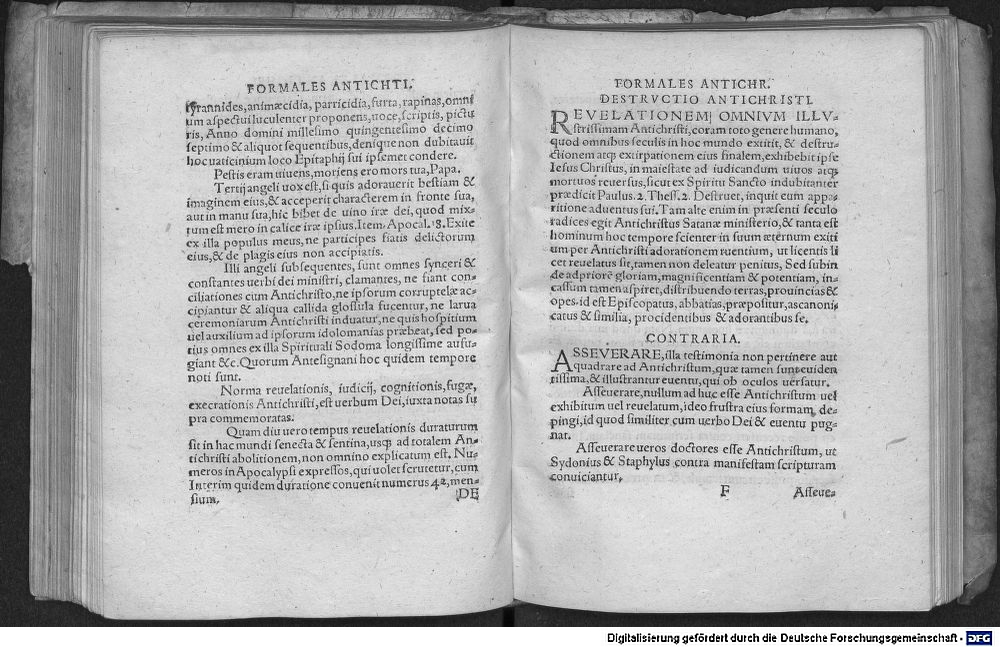 FORMALES ANTICHTI.
tyrannides, animæcidia, parricidia, furta, rapinas, omni
um aspectui luculenter proponens, uoce, scriptis, pictu
ris, Anno domini millesimo quingentesimo decimo
septimo & aliquot sequentibus, denique non dubitauit
hoc uaticinium loco Epitaphij sui ipsemet condere.
Pestis eram uiuens, moriens ero mors tua, Papa.
Tertij angeli uox est, si quis adorauerit bestiam &
imaginem eius, & acceperit characterem in fronte sua,
aut in manu sua, hic bibet de uino iræ dei, quod mix-
tum est mero in calice iræ ipsius. Item. Apocal. 18. Exite
ex illa populus meus, ne participes fiatis delictorum
eius, & de plagis eius non accipiatis.
Illi angeli subsequentes, sunt omnes synceri &
constantes uerbi dei ministri, clamantes, ne fiant con-
ciliationes cum Antichristo, ne ipsorum corruptelæ ac-
cipiantur & aliqua callida glossula fucentur, ne larua
ceremoniarum Antichristi induatur, ne quis hospitium
uel auxilium ad ipsorum idolomanias præbeat, sed po-
tius omnes ex illa Spirituali Sodoma longissime aufu-
giant &c. Quorum Antesignani hoc quidem tempore
noti sunt.
Norma reuelationis, iudicij, cognitionis, fugæ,
execrationis Antichristi, est uerbum Dei, iuxta notas su
pra commemoratas.
Quam diu uero tempus reuelationis duraturum
sit in hac mundi senecta & sentina, usq; ad totalem An-
tichristi abolitionem, non omnino explicatum est. Nu-
meros in Apocalypsi expressos, qui uolet scrutetur, cum
Interim quidem duratione conuenit numerus 42, men-
sium.
DE
FORMALES ANTICHR.
DESTRVCTIO ANTICHRISTI.
REVELATIONEM OMNIVM ILLV-
strissimam Antichristi, coram toto genere humano,
quod omnibus seculis in hoc mundo extitit, & destru-
ctionem atq; extirpationem eius finalem, exhibebit ipse
Iesus Christus, in maiestate ad iudicandum uiuos atq;
mortuos reuersus, sicut ex Spiritu Sancto indubitanter
prædicit Paulus. 2. Thess. 2. Destruet, inquit eum appa-
ritione aduentus sui. Tam alte enim in præsenti seculo
radices egit Antichristus Satanæ ministerio, & tanta est
hominum hoc tempore scienter in suum æternum exiti
um per Antichristi adorationem ruentium, ut licentis li
cet reuelatus sit, tamen non deleatur penitus, Sed subin
de ad priorē gloriam, magnificentiam & potentiam, in-
cassum tamen aspiret, distribuendo terras, prouincias &
opes. id est Episcopatus, abbatias, præpositur, as canoni-
catus & similia, procidentibus & adorantibus se.
CONTRARIA.
ASSEVERARE, illa testimonia non pertinere aut
quadrare ad Antichristum, quæ tamen sunt euiden
tissima, & illustrantur euentu, qui ob oculos uersatur.
Asseuerare, nullum ad huc esse Antichristum uel
exhibitum uel reuelatum, ideo frustra eius formam, de-
pingi, id quod similiter cum uerbo Dei & euentu pug-
nat.
Asseuerare ueros doctores esse Antichristum, ut
Sydonius & Staphylus contra manifestam scripturam
conuiciantur.
F Asseue-
Digitalisierung gefördert durch die Deutsche Forschungsgemeinschaft - DFG